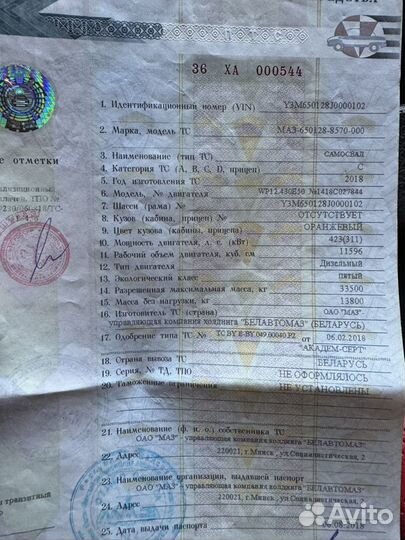 ДСТВА
П Т С
36 ХА 000544
1. Идентификационный номер (VIN) Y3M650128J0000102
2. Марка, модель ТС МАЗ-650128-8570-000
3. Наименование (тип ТС) САМОСВАЛ
4. Категория ТС (A, B, C, D, прицеп) C
5. Год изготовления ТС 2018
6. Модель, № двигателя WP12.430E50 №1418C027844
7. Шасси (рама) № Y3M650128J0000102
8. Кузов (кабина, прицеп) № ОТСУТСТВУЕТ
9. Цвет кузова (кабины, прицепа) ОРАНЖЕВЫЙ
10. Мощность двигателя, л. с. (кВт) 423(311)
11. Рабочий объем двигателя, куб. см 11596
12. Тип двигателя Дизельный
13. Экологический класс пятый
14. Разрешенная максимальная масса, кг 33500
15. Масса без нагрузки, кг 13800
16. Изготовитель ТС (страна) ОАО "МАЗ"-
управляющая компания холдинга "БЕЛАВТОМАЗ" (БЕЛАРУСЬ)
17. Одобрение типа ТС № ТС BY E-BY.049.00040.P2 от 06.02.2018
"АКАДЕМ-СЕРТ"
18. Страна вывоза ТС БЕЛАРУСЬ
19. Серия, № ТД, ТПО НЕ ОФОРМЛЯЛОСЬ
20. Таможенные ограничения НЕ УСТАНОВЛЕНЫ
21. Наименование (ф. и. о.) собственника ТС
ОАО "МАЗ" - управляющая компания холдинга "БЕЛАВТОМАЗ"
22. Адрес 220021, г.Минск, ул.Социалистическая, 2
23. Наименование организации, выдавшей паспорт
ОАО "МАЗ" - управляющая компания холдинга "БЕЛАВТОМАЗ"
24. Адрес 220021, г.Минск, ул.Социалистическая, 2
25. Дата выдачи паспорта 06.08.2018
е отметки
ТПО №
транзитный
Avito